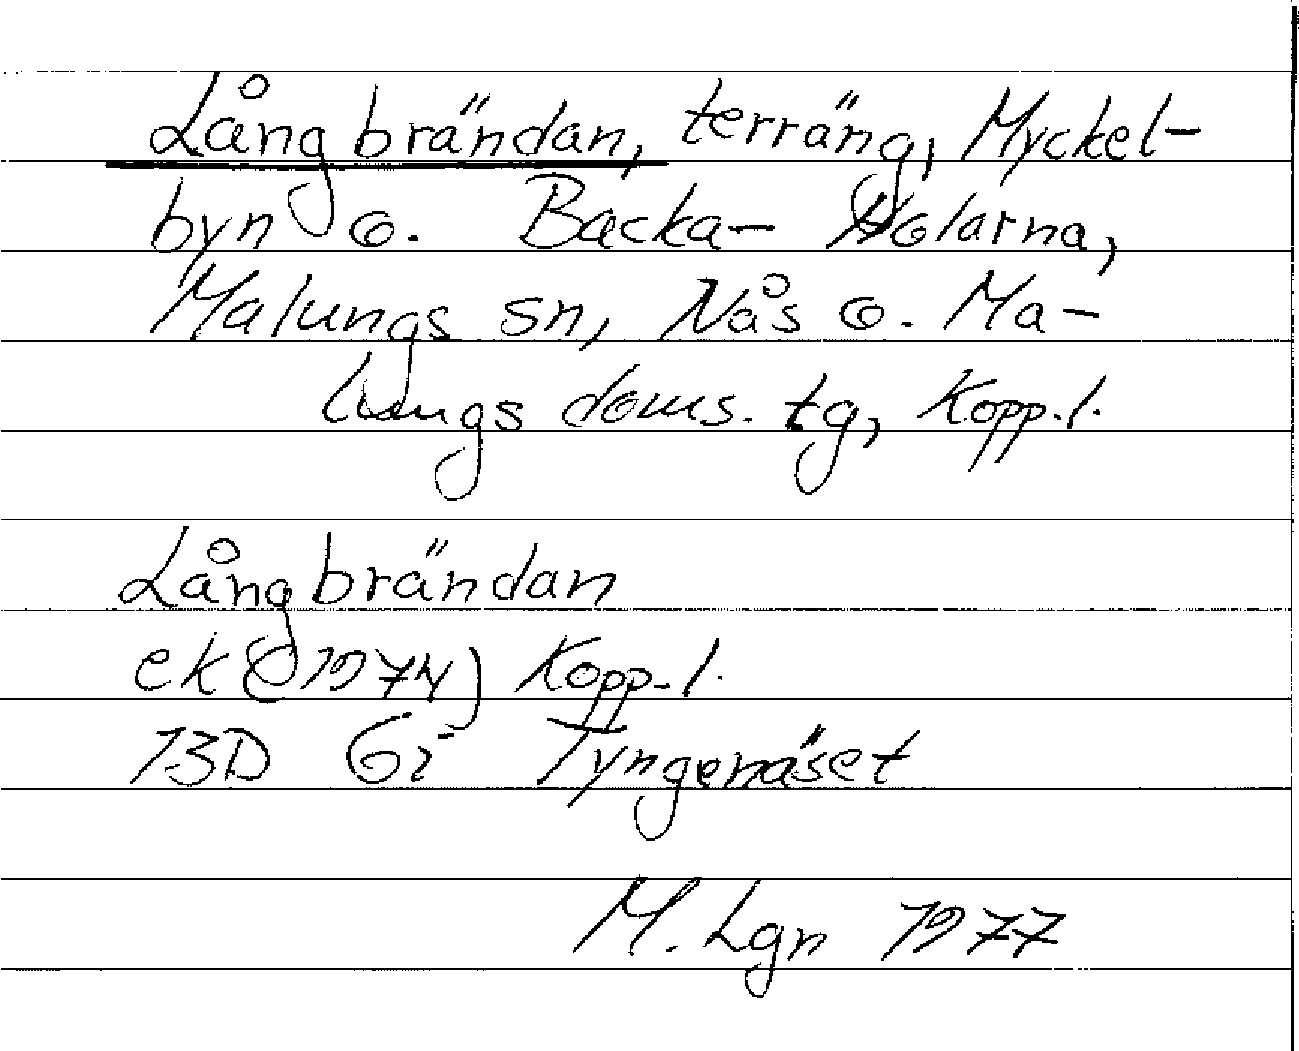 Långbrändan, terräng, Myckel-
byn o. Backa- Holarna,
Malungs sn, Nås o. Ma-
lungs doms. tg, Kopp.l.
Långbrändan
ek (1974) Kopp.l.
13D 6i Tyngenäset
M. Lgn 1977